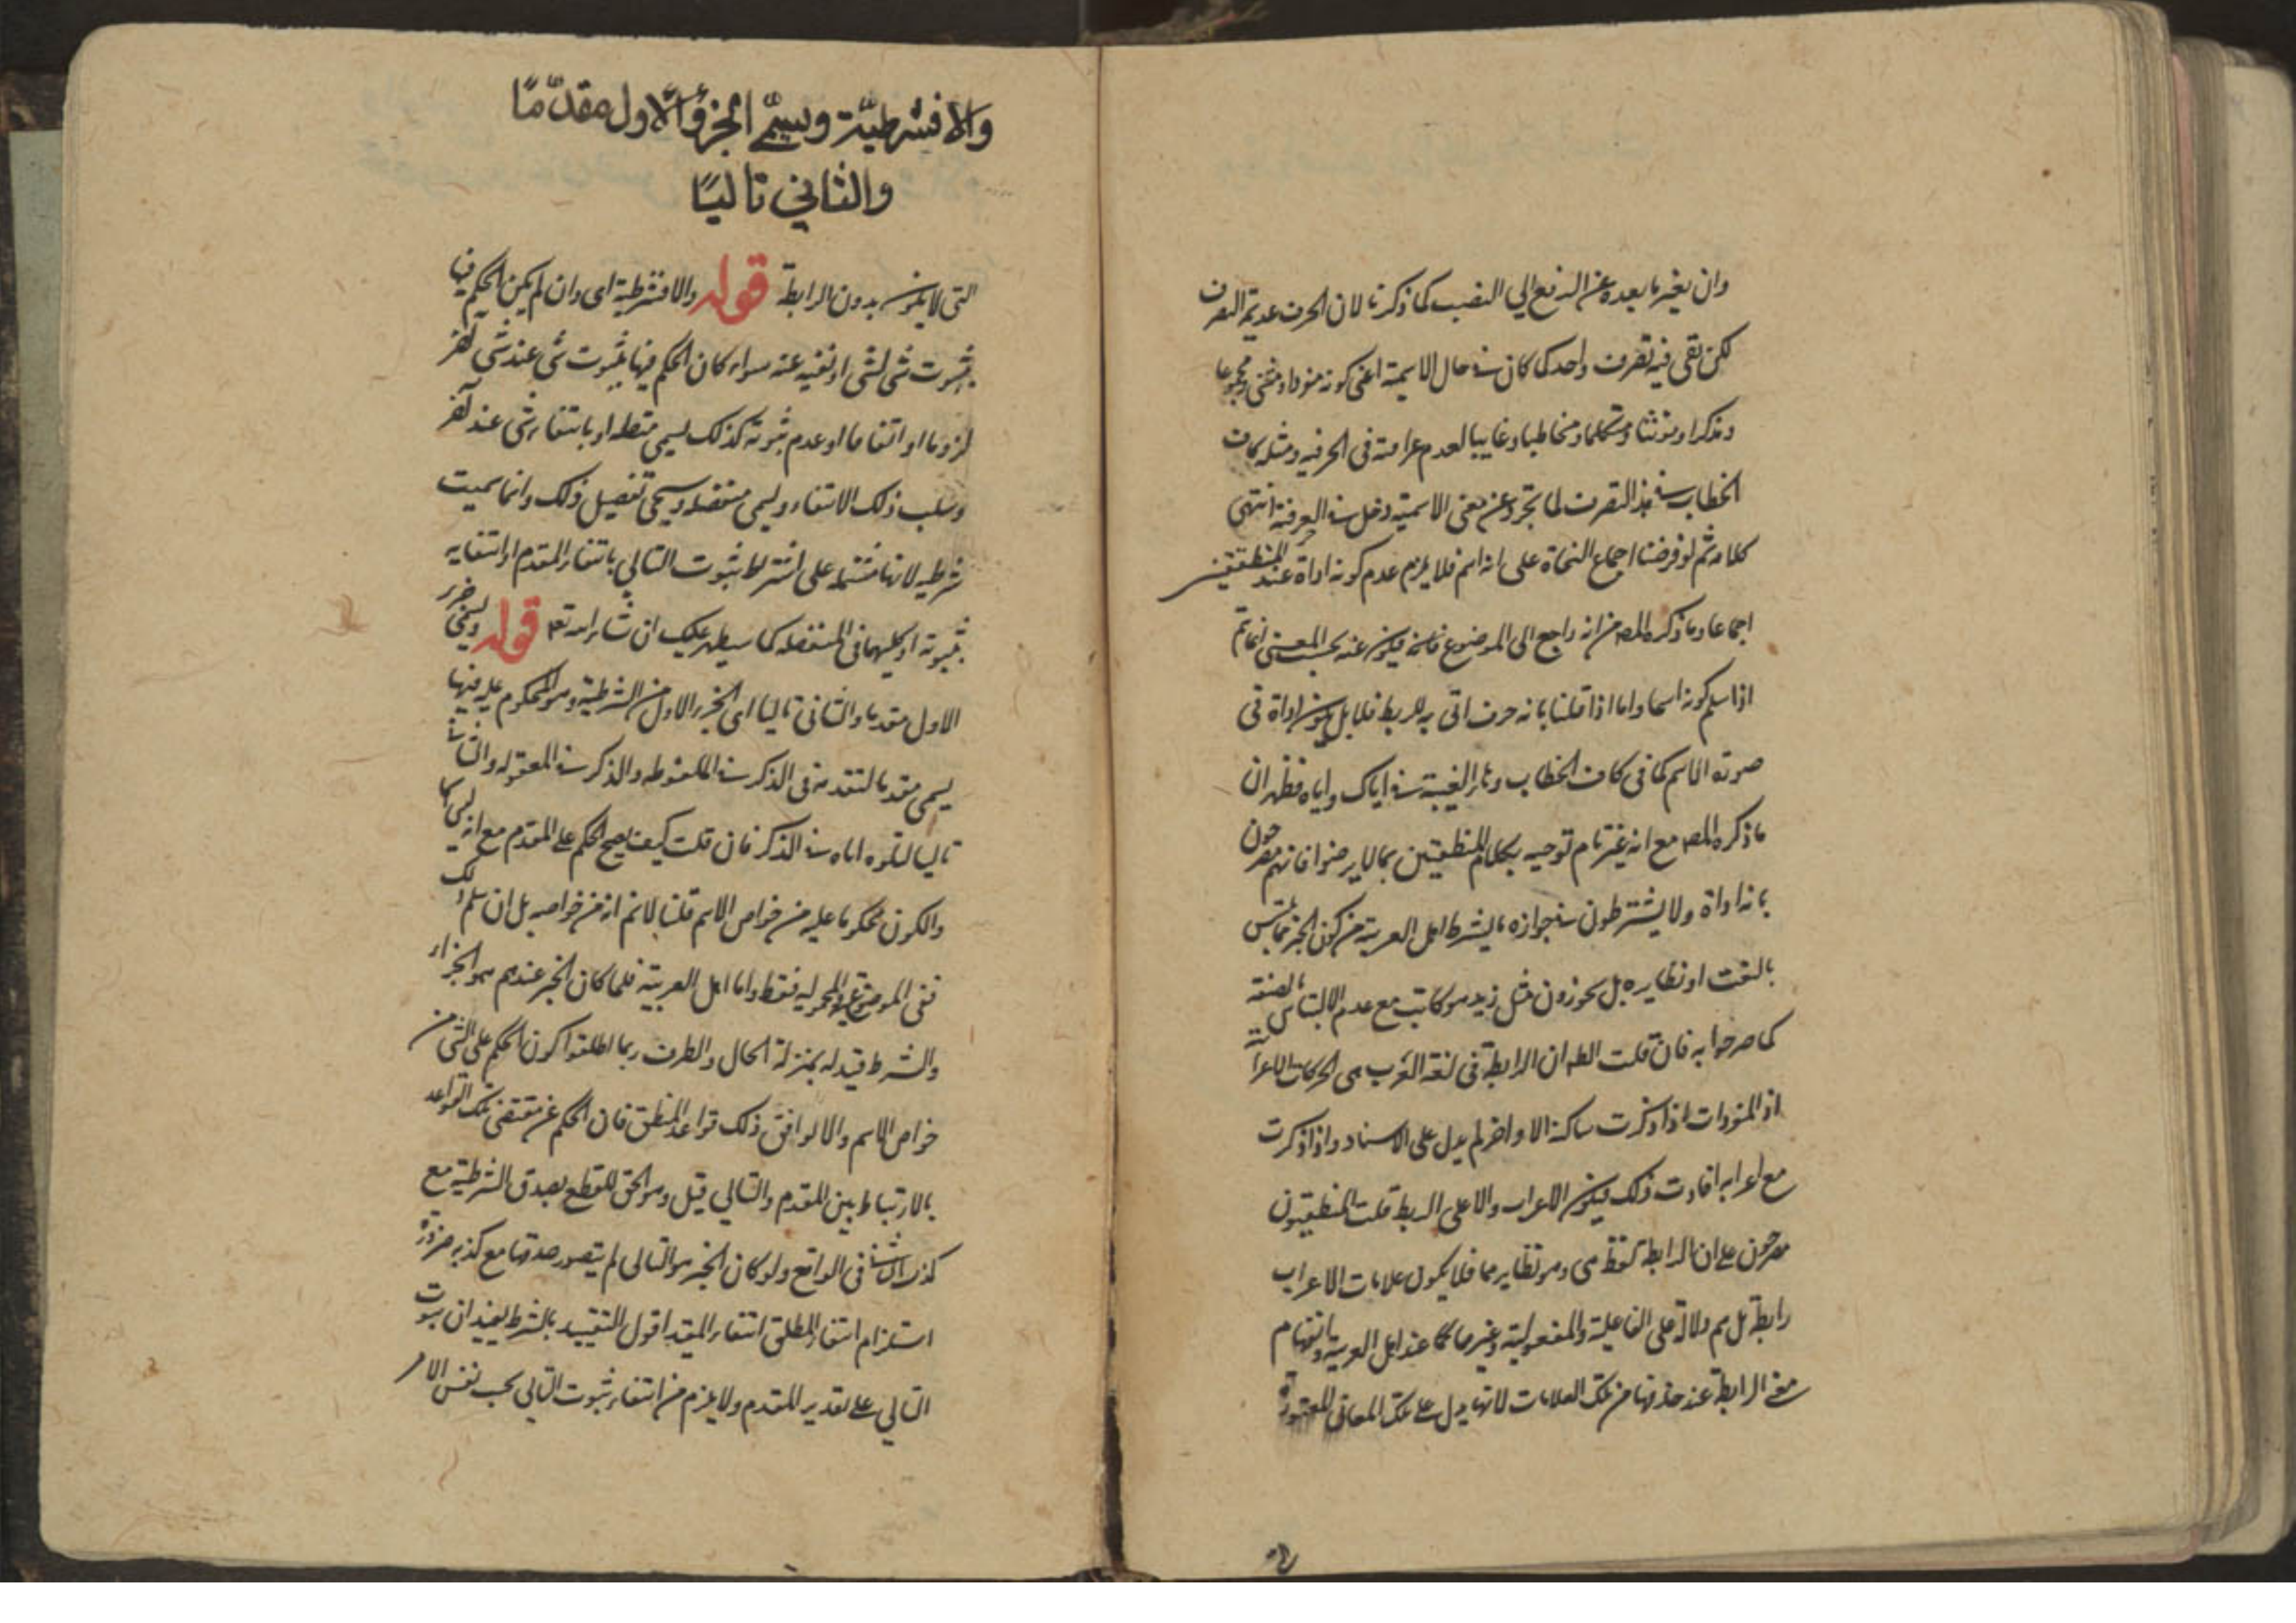 وان يغير ما بعده عن الرفع الي النصب كما ذكرنا لان الحرف عديم التصرف
لكن بقى فيه تصرف واحد كما كان في حال الاسمية اعنى كونه مفردا ومثنى ومجموعا
ومذكرا ومونثا ومتكلما ومخاطبا وغايبا لعدم عرامته فى الحرفيه ومثله كاف
الخطاب في هذا التصرف لما تجرد عن معنى الاسمية دخل في الحرفية انتهى
كلامه ثم لو فرضنا اجماع النحاة على انه اسم فلا يلزم عدم كونه اداة عند المنطقيين
اجماعا وما ذكره المص من انه راجع الى الموضوع فيكون عنه بحسب المعنى انما يتم
اذا سلم كونه اسما واما اذا قلنا بانه حرف اتى به للربط فلا بل يكون اداة فى
صورة الاسم كما فى كاف الخطاب وهاء الغيبة في اياك واياه فظهر ان
ما ذكره المص مع انه غير تام توجيه بكلام المنطقيين بما لا يرضوا فانهم مصرحون
بانه اداة ولا يشترطون في جوازه ما يشترط اهل العربية من كون الخبر
بالنعت او نظايره بل يجوزون مثل زيد هو كاتب مع عدم الالتباس بالصفة
كما صرحوا به فان قلت الظه ان الرابطة فى لغة العرب هى الحركات الاعرابية
اذ المفردات اذا ذكرت ساكنة الاواخر لم يدل على الاسناد واذا ذكرت
مع اعرابه افادت ذلك فيكون الاعراب دالا على الربط قلت المنطقيون
مصرحون على ان الرابطة لفظ هى وهو ونظايرهما فلا يكون علامات الاعراب
رابطة بل هم دلالة على الفاعلية والمفعولية وغيرهما كما عند اهل العربية وانفهام
معنى الرابطة عند حذفها من تلك العلامات لانها يدل على تلك المعانى المعتورة
والا فشرطيّة ويسمّى الجزؤ الاول مقدّمًا
والثاني تاليًا
التى لا يكون بدون الرابطة قوله والا فشرطية اى وان لم يكن الحكم فيها
بثبوت شئ لشئ او نفيه عنه سواء كان الحكم فيها بثبوت شئ عند شئ آخر
لزوما او اتفاقا او عدم ثبوته كذلك يسمى متصله او بانتفاء شئ عند آخر
وسلب ذلك الانتفاء ويسمى منفصله وسيجى تفصيل ذلك وانما سميت
شرطيه لانها مشتمله على اشتراط ثبوت التالي بانتفاء المقدم او انتفايه
بثبوته او كليهما فى المنفصله كما سيظهر عليك ان شاء الله تعه قوله ويسمى الجزء
الاول مقدما والثانى تاليا اى الجزء الاول من الشرطية وهو المحكوم عليه فيها
يسمى مقدما لتقدمه فى الذكر في الملفوظه والذكر في المعقوله والثانى
تاليا لتلوه اياه في الذكر فان قلت كيف يصح الحكم على المقدم مع انه ليس اسما
والكون محكوما عليه من خواص الاسم قلنا لانم انه من خواصه بل ان سلم ذلك
ففى الموضوع والمحموليه فقط واما اهل العربية فلما كان الخبر عندهم هو الجزاء
والشرط قيد له بمنزلة الحال والظرف ربما اطلقوا كون الحكم على الشئ من
خواص الاسم والا لوافق ذلك قواعد المنطق فان الحكم عن مقتضى تلك القواعد
بالارتباط بين المقدم والتالي قيل وهو الحق للقطع بصدق الشرطية مع
كذب التالى فى الواقع ولو كان الخبر هو التالى لم يتصور صدقها مع كذبه ضرورة
استلزام انتفاء المطلق انتفاء المقيد اقول التقييد بالشرط يفيد ان ثبوت
التالي على تقدير المقدم ولا يلزم من انتفاء ثبوت التالي بحسب نفس الامر